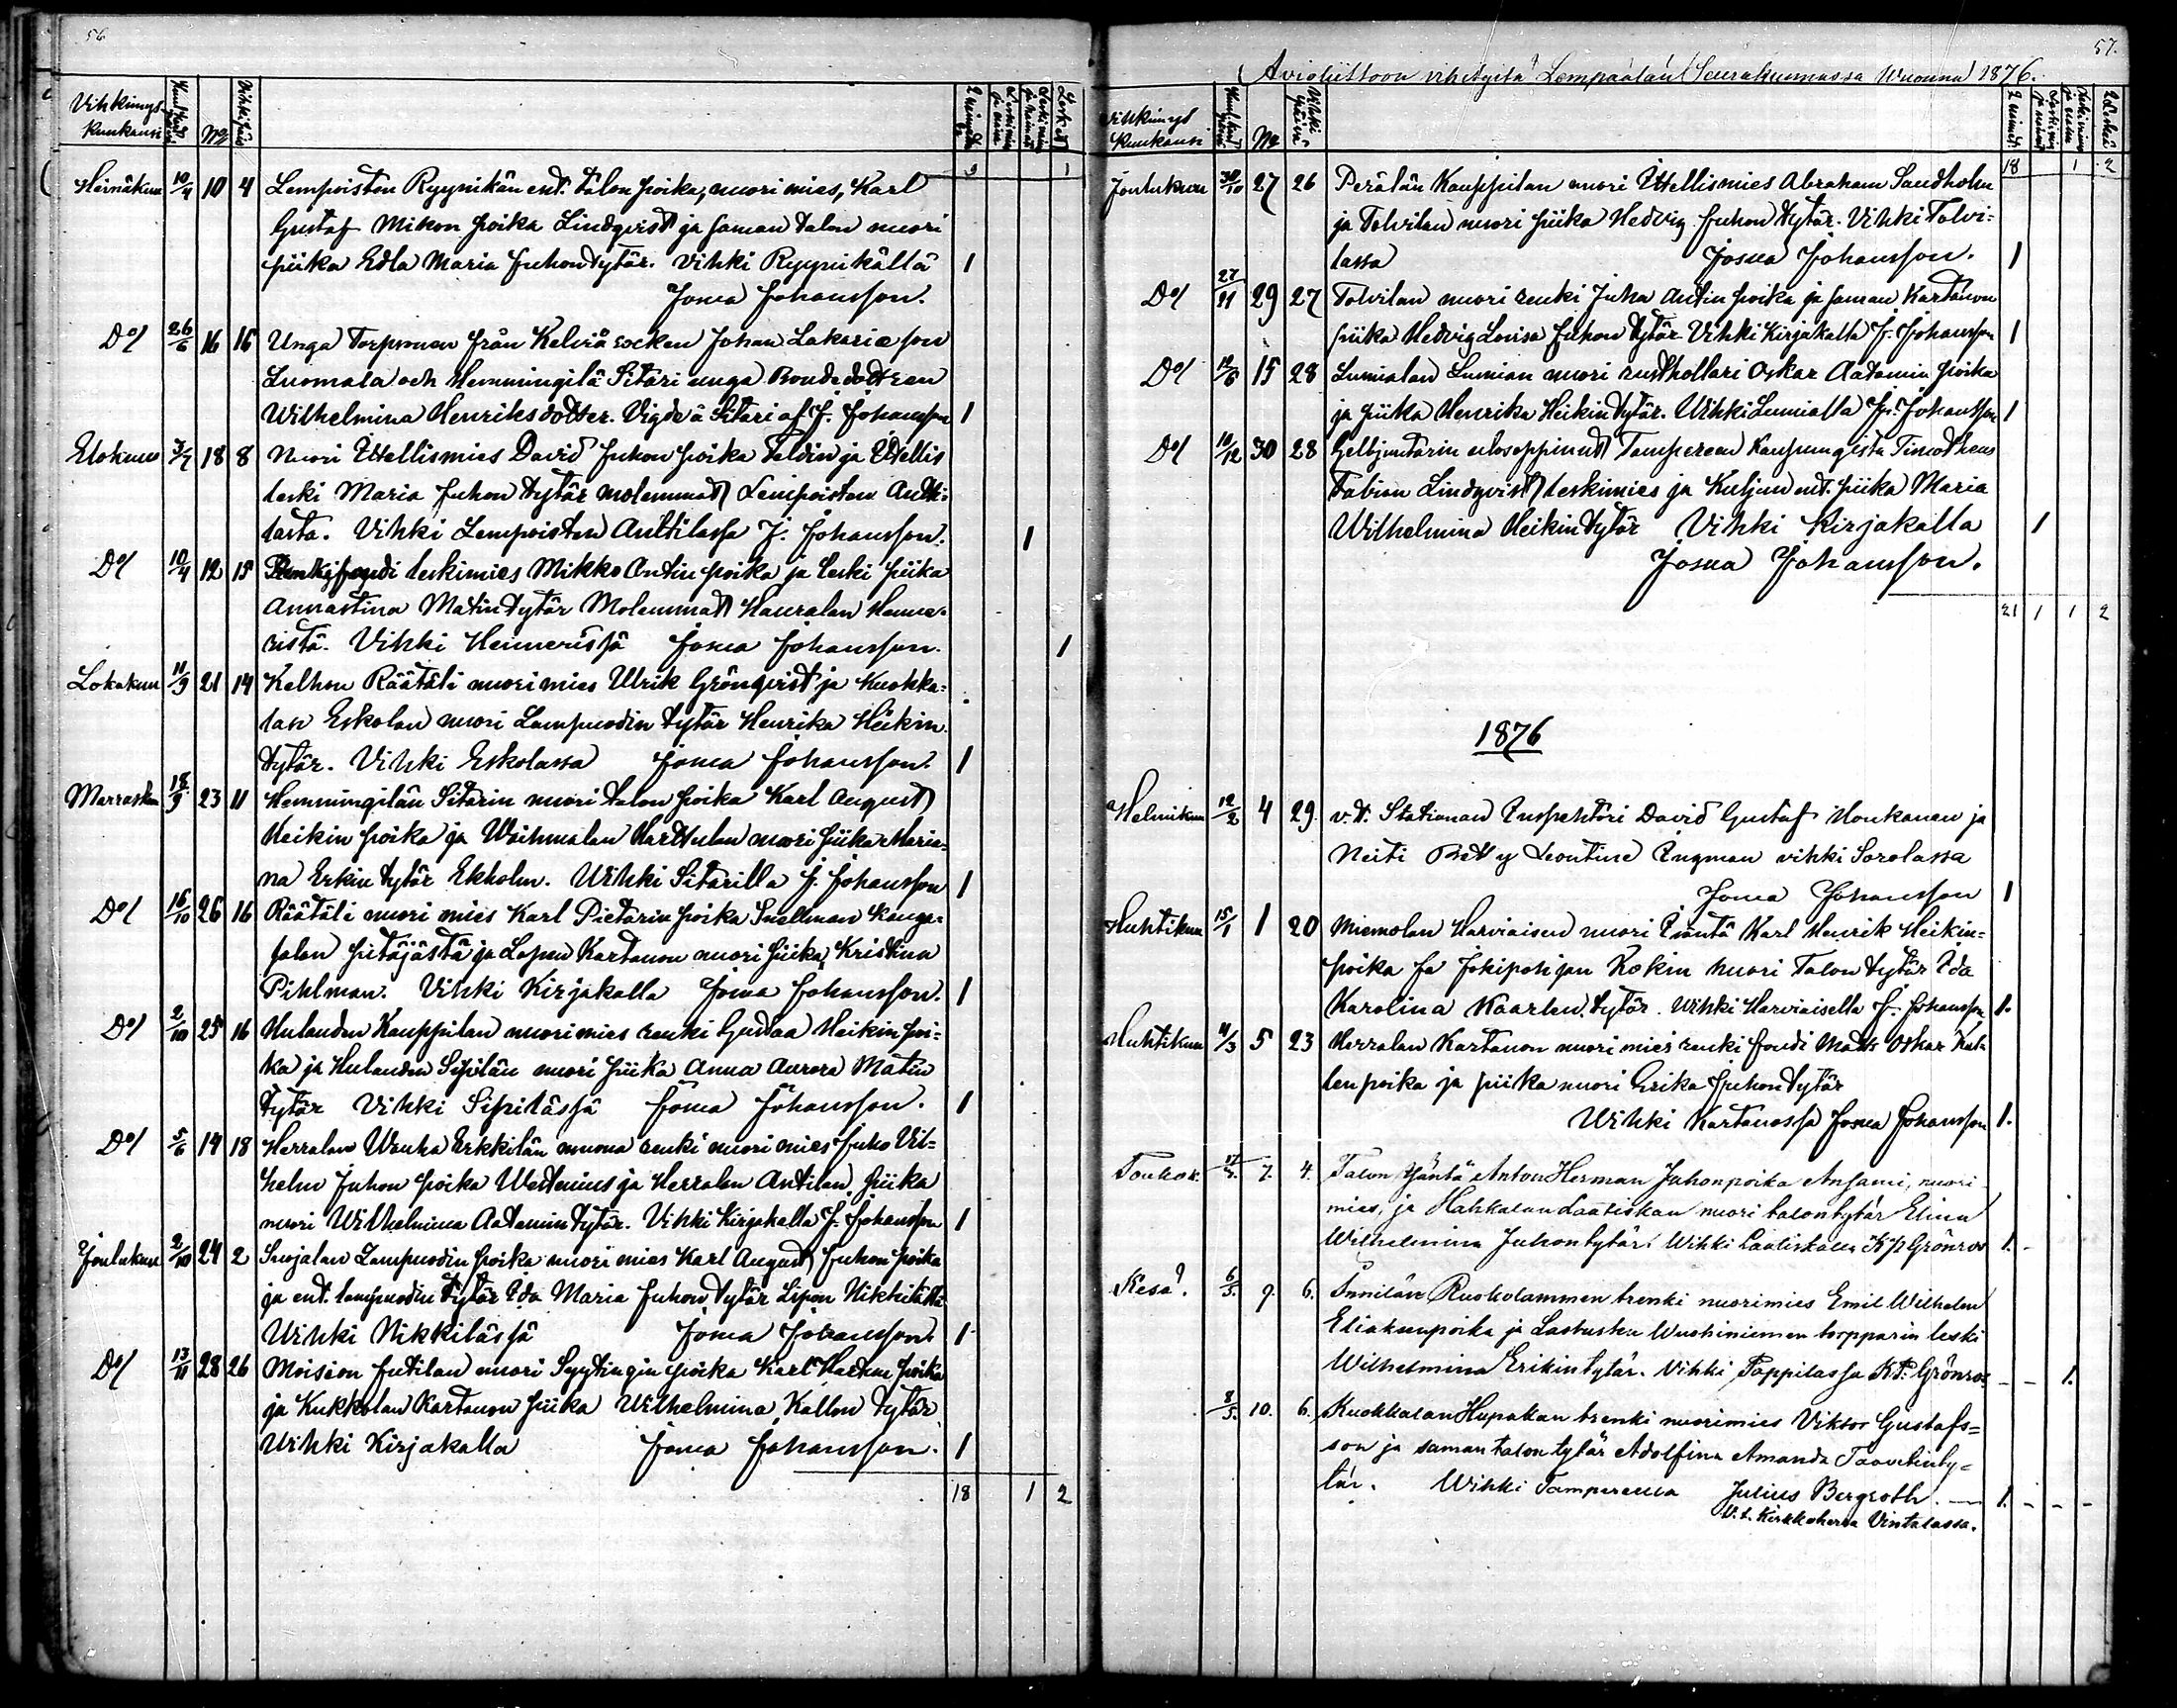 56.
Vihkimys-
kuukausi
No
Heinäkuu 10/4 10 4 Lempoisten Ryynikän ent. talon poika, nuori mies, Karl
Gustaf Mikon poika Lindqvist ja saman talon nuori
piika Edla Maria Juhon tytär. Vihki Ryynikällä 1
Josua Johansson.
Do/ 26/6 16 15 Unga Torpman från Kelviå socken Johan Zakariæ son
Luomala och Hemmingilä Sitari unga Bondedottren
Wilhelmina Henriksdotter. Vigde å Sitari af J. Johansson 1
Elokuu 3/7 18 8 Nuori Itellismies David Juhon poika Saldin ja Itellis
leski Maria Juhon tytär molemmat Lempoisten Antti-
lasta. Vihki Lempoisten Anttilassa J. Johansson. 1
Do/ 10/4 12 15 leskimies Mikko Antin poika ja leski piika
Annastina Matin tytär Molemmat Hauralan Henne-
ristä. Vihki Hennerissä Josua Johansson. 1
Lokakuu 11/9 21 14 Kelhon Räätäli nuori mies Ulrik Grönqvist ja Kuokka-
lan Eskolan nuori Lampuodin tytär Henrika Heikin
tytär. Vihki Eskolassa Josua Johansson. 1
Marraskuu 18/9 23 11 Hemmingilän Sitarin nuori talon poika Karl August
Heikin poika ja Waihmalan Harttulan nuori piika Maria-
na Erkin tytär Ekholm. Wihki Sitarilla J. Johansson 1
Do/ 16/10 26 16 Räätäli nuori mies Karl Pietarin poika Snellman Kanga-
salan pitäjästä ja Lopen Kartanon nuori piika Kristina
Pihlman. Vihki Kirjakalla Josua Johansson. 1
Do/ 2/10 25 16 Hulauden Kauppilan nuori mies renki Gustaa Heikin poi-
ka ja Hulauden Sipilän nuori piika Anna Aurora Matin
tytär Vihki Sipilässä Josua Johansson. 1
Do/ 5/6 14 18 Herralan Wanha Erkkilän muona renki nuori mies Juho Vil-
helm Juhon poika Westenius ja Herralan Antilan piika
nuori Wilhelmina Aatamin tytär. Vihki Kirjakalla J. Johansson 1
Joulukuu 2/10 24 2 Suojalan Lampuodin poika nuori mies Karl August Juhon poika
ja ent. lampuodin tytär Ida Maria Juhon tytär Lipon Nikkilästä
Wihki Nikkilässä Josua Johansson. 1
Do/ 13/11 28 26 Moision Jutilan nuori Syytingin poika Karl poika
ja Kukkolan Kartanon piika Wilhelmina Kallen tytär
Wihki Kirjakalla Josua Johansson. 1
18 1 2
57.
Avioliittoon vihityitä Lempäälän Seurakunnassa Wuonna 1876.
Vihkimys
kuukausi
No
18 1 2
Joulukuu 30/10 27 26 Perälän Kauppilan nuori Itellismies Abraham Sandholm
ja Tolvilan nuori piika Hedvig Juhon tytär. Vihki Tolvi-
lassa Josua Johansson. 1
Do/ 27/11 29 27 Tolvilan nuori renki Juha Antin poika ja saman Kartanon
piika Hedvig Lovisa Juhon tytär Vihki Kirjakalla J. Johansson 1
Do/ 12/6 15 28 Lumialan Lumian nuori rusthollari Oskar Aatamin poika
ja piika Henrika Heikin tytär. Wihki Lumialla J. Johansson 1
Do/ 10/12 30 28 Gelbjuutarin uloosoppinut Tampereen Kaupungista Timotheus
Fabian Lindqvist leskimies ja Kuljun ent. piika Maria
Wilhelmina Heikin tytär Vihki Kirjakalla 1
Josua Johansson.
21 1 1 2
1876
Helmikuu 12/2 4 29. v.t. Stationan Inspehtöri David Gustaf Honkanen ja
Neiti Betty Leontine Ingman vihki Sorolassa
Josua Johansson 1
Huhtikuu 15/1 1 20 Miemolan Harviaisen nuori Isäntä Karl Henrik Heikin-
poika ja Jokipohjan Kokin nuori Talon tytär Ida
Karolina Kaarlen tytär. Wihki Harviaisella J. Johansson 1.
Huhtikuu 4/3 5 23 Herralan Kartanon nuori mies renki Mats Oskar Kal-
len poika ja piika nuori Erika Juhon tytär
Wihki Kartanossa Josua Johansson 1.
Toukok. 17/4. 7. 4. Talon isäntä Anton Herman Juhonpoika Ansami, nuori
mies, ja Hakkalan Laatiskan nuori talontytär Elina
Wilhelmina Juhontytär. Wihki Laatiskalla K P Grönroos 1. -
Kesäk. 6/5. 9. 6. Innilän Ruokolammen trenki nuorimies Emil Wilhelm
Eliaksenpoika ja Lastusten Wuohiniemen torpparin leski
Wilhelmina Erikintytär. Vihki Pappilassa KP. Grönroos - - 1.
8/5. 10. 6. Kuokkalan Hupakan trenki nuorimies Viktor Gustafs-
son ja saman talon tytär Adolfina Amanda Taavetinty-
tär. Wihki Tampereella Julius Bergroth. — 1. - - -
V.t. Kirkkoherra Vintalassa.